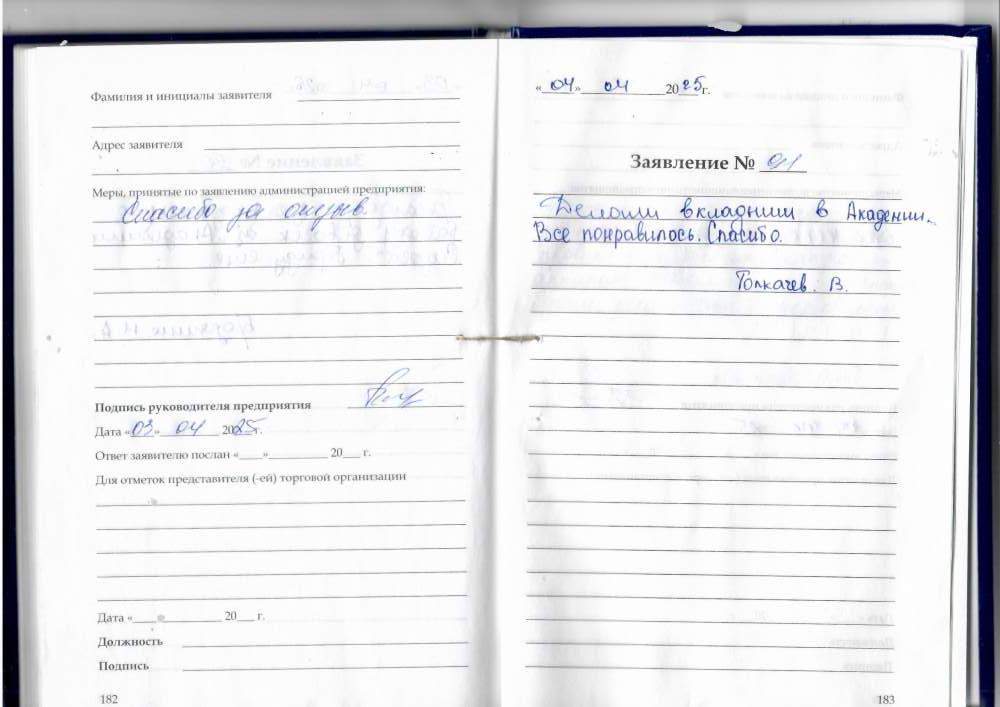 Фамилия и инициалы заявителя
Адрес заявителя
Меры, принятые по заявлению администрацией предприятия:
Спасибо за отзыв.
Подпись руководителя предприятия
Дата «03» 04 2025г.
Ответ заявителю послан «___»__________ 20___ г.
Для отметок представителя (-ей) торговой организации
Дата «____»__________ 20___ г.
Должность
Подпись
182
«04» 04 2025г.
Заявление № 91
Делали вкладыши в Академии.
Все понравилось. Спасибо.
Толкачев. В.
183